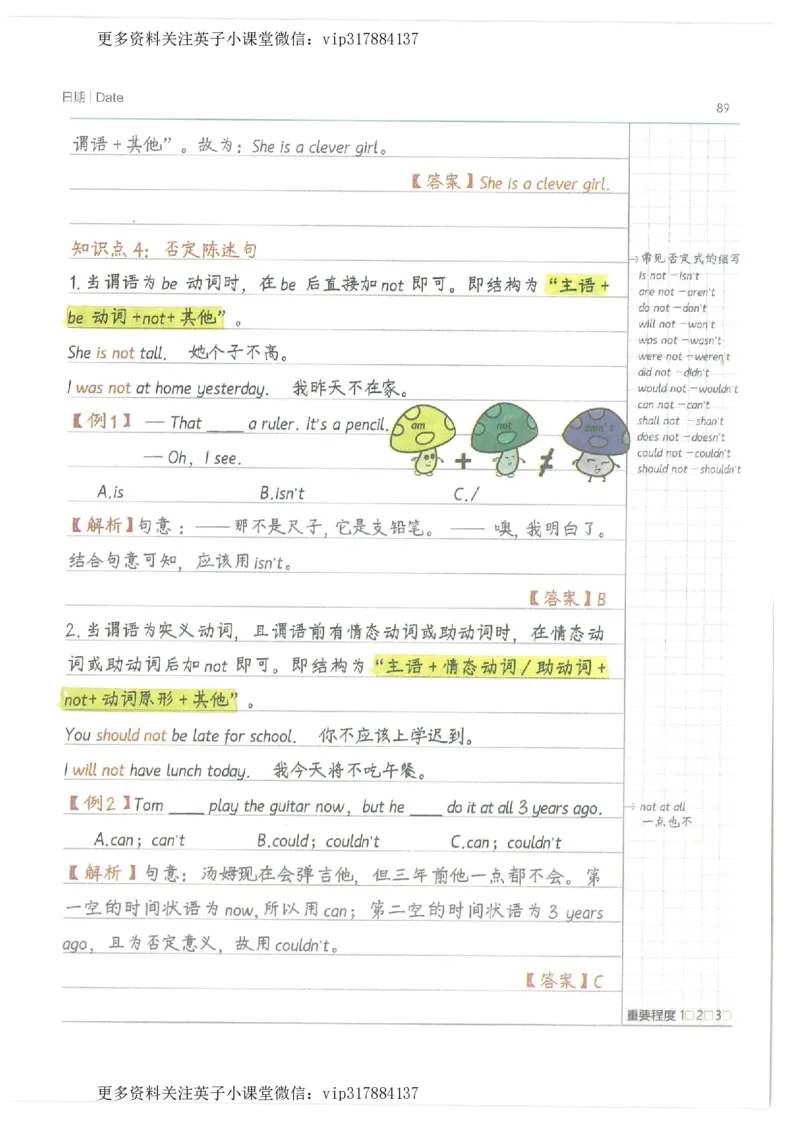 更多资料关注英子小课堂微信：vip317884137
日期 | Date
89
谓语 + 其他”。故为：She is a clever girl。
【答案】She is a clever girl.
知识点 4：否定陈述句
1. 当谓语为 be 动词时，在 be 后直接加 not 即可。即结构为“主语 +
be 动词 +not+ 其他”。
She is not tall. 她个子不高。
I was not at home yesterday. 我昨天不在家。
【例1】 — That ____ a ruler. It's a pencil.
— Oh, I see.
am + not ≠ amn't
A.is B.isn't C./
【解析】句意：—— 那不是尺子，它是支铅笔。 —— 噢，我明白了。
结合句意可知，应该用 isn't。
【答案】B
2. 当谓语为实义动词，且谓语前有情态动词或助动词时，在情态动
词或助动词后加 not 即可。即结构为“主语 + 情态动词 / 助动词 +
not+ 动词原形 + 其他”。
You should not be late for school. 你不应该上学迟到。
I will not have lunch today. 我今天将不吃午餐。
【例2】Tom ____ play the guitar now, but he ____ do it at all 3 years ago.
A.can；can't B.could；couldn't C.can；couldn't
【解析】句意：汤姆现在会弹吉他，但三年前他一点都不会。第
一空的时间状语为 now，所以用 can；第二空的时间状语为 3 years
ago，且为否定意义，故用 couldn't。
【答案】C
→常见否定式的缩写
is not —isn't
are not —aren't
do not —don't
will not —won't
was not —wasn't
were not —weren't
did not —didn't
would not —wouldn't
can not —can't
shall not —shan't
does not —doesn't
could not —couldn't
should not —shouldn't
→ not at all
一点也不
重要程度 1□ 2□ 3□
更多资料关注英子小课堂微信：vip317884137